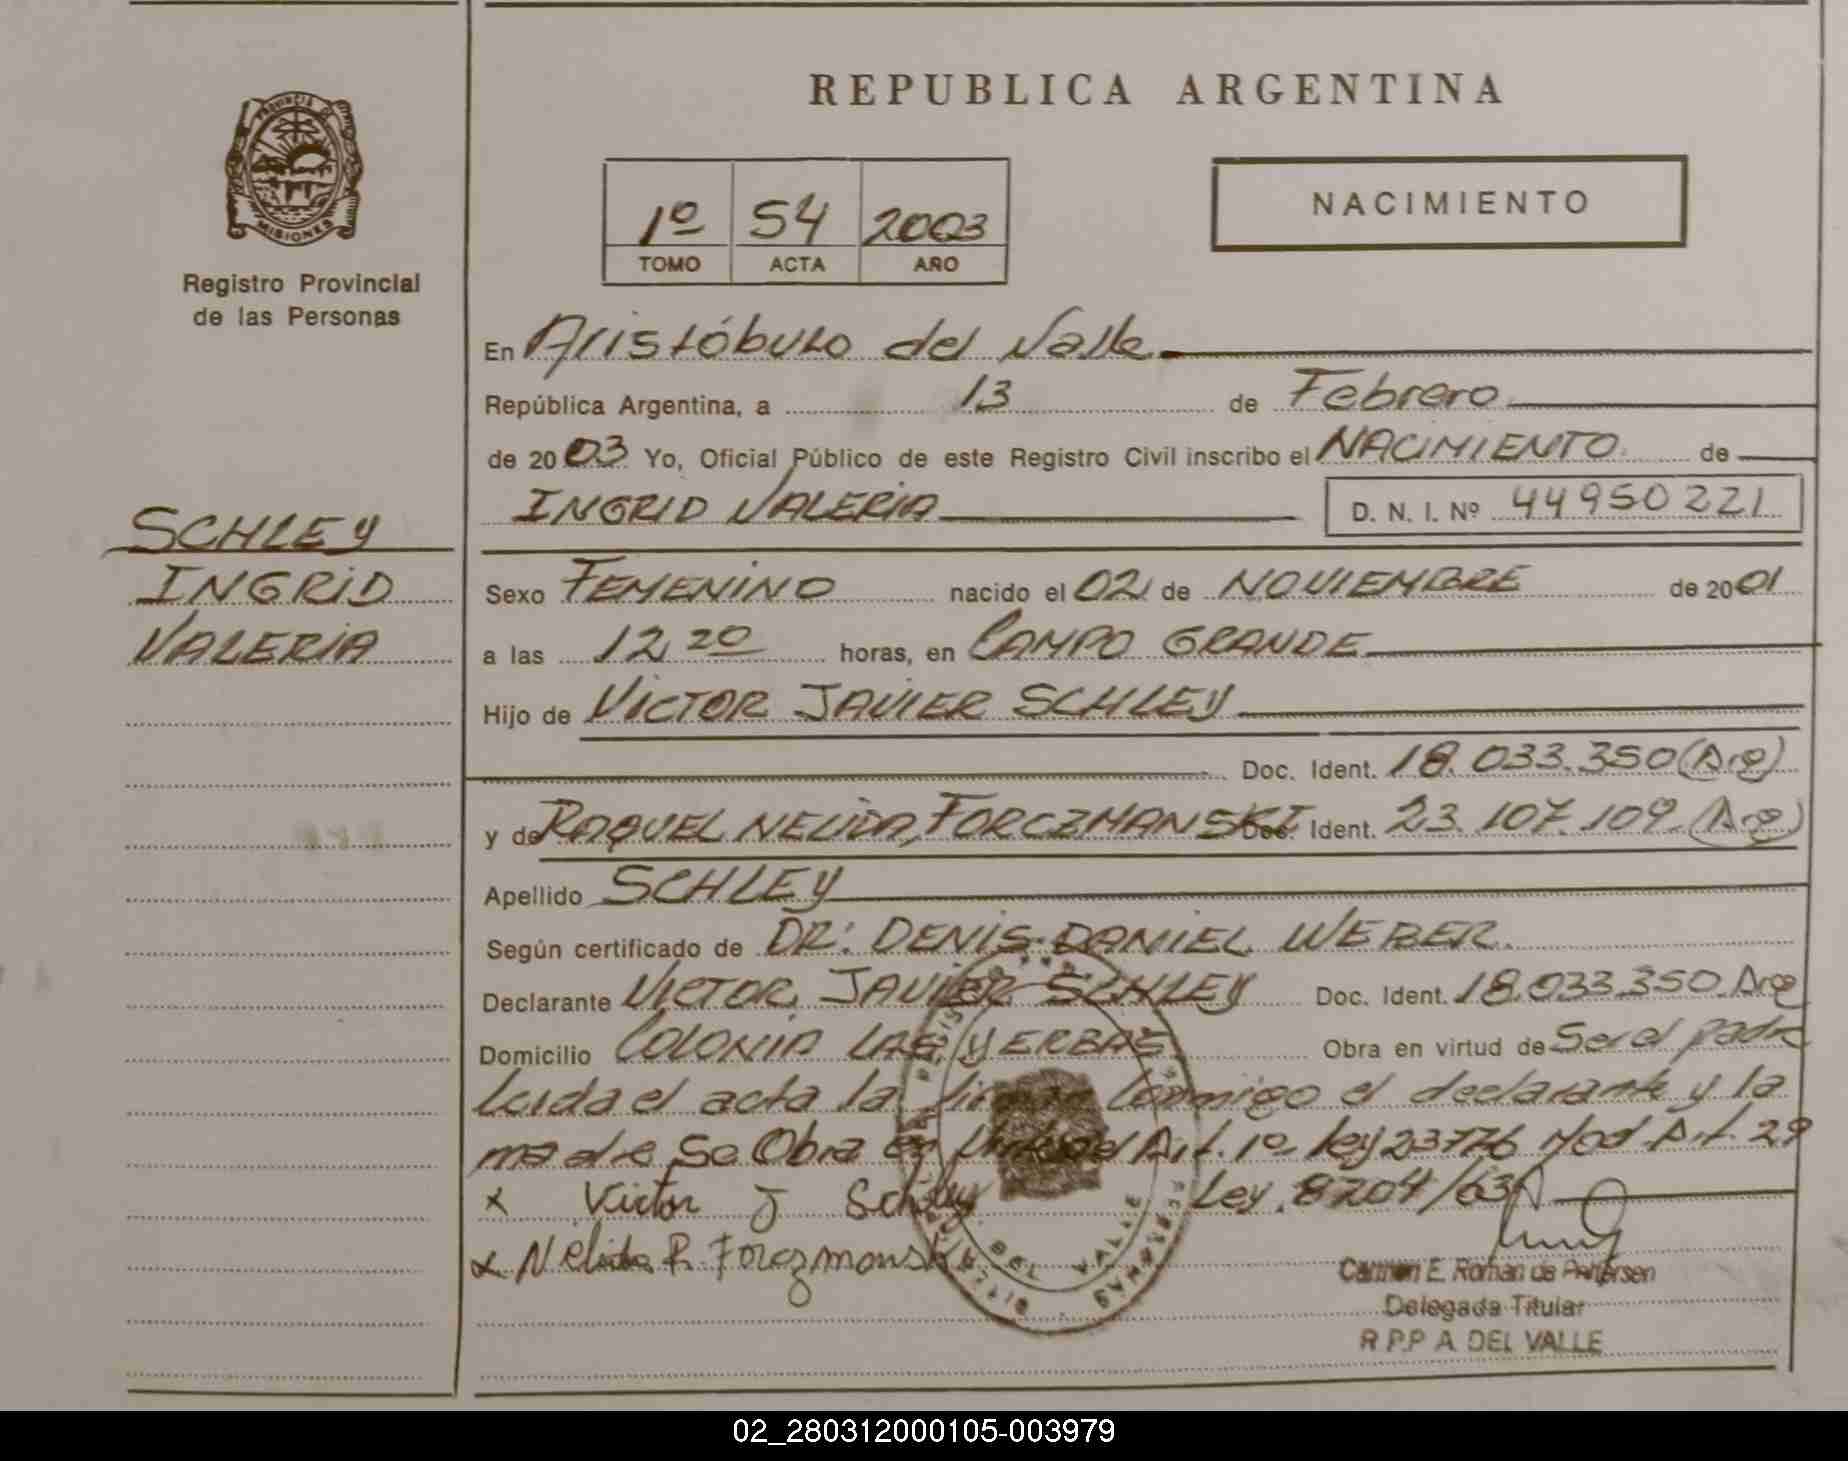 REPUBLICA ARGENTINA
PROVINCIA DE
MISIONES
Registro Provincial
de las Personas
1º 54 2003
TOMO ACTA AÑO
NACIMIENTO
En Aristóbulo del Valle
República Argentina, a 13 de Febrero
de 2003 Yo, Oficial Público de este Registro Civil inscribo el NACIMIENTO de
INGRID VALERIA D. N. I. Nº 44950221
SCHLEY
INGRID
VALERIA
Sexo FEMENINO nacido el 02 de NOVIEMBRE de 2001
a las 12 20 horas, en CAMPO GRANDE
Hijo de VICTOR JAVIER SCHLEY
Doc. Ident. 18.033.350 (Arg)
y de RAQUEL NELIDA FORCZMANSKI Doc. Ident. 23.107.109 (Arg)
Apellido SCHLEY
Según certificado de DR: DENIS DANIEL WEBER.
Declarante VICTOR JAVIER SCHLEY Doc. Ident. 18.033.350 Arg
Domicilio COLONIA LAS YERBAS Obra en virtud de Ser el padre
Leida el acta la firman conmigo el declarante y la
madre Se Obra en Virtud Art. 1º Ley 23776 Mod. Art. 29
x Victor J Schley Ley 8204/63
x Nelida R. Forczmanski
DEL VALLE
Carmen E. Roman de Pettersen
Delegada Titular
R.P.P A. DEL VALLE
02_280312000105-003979